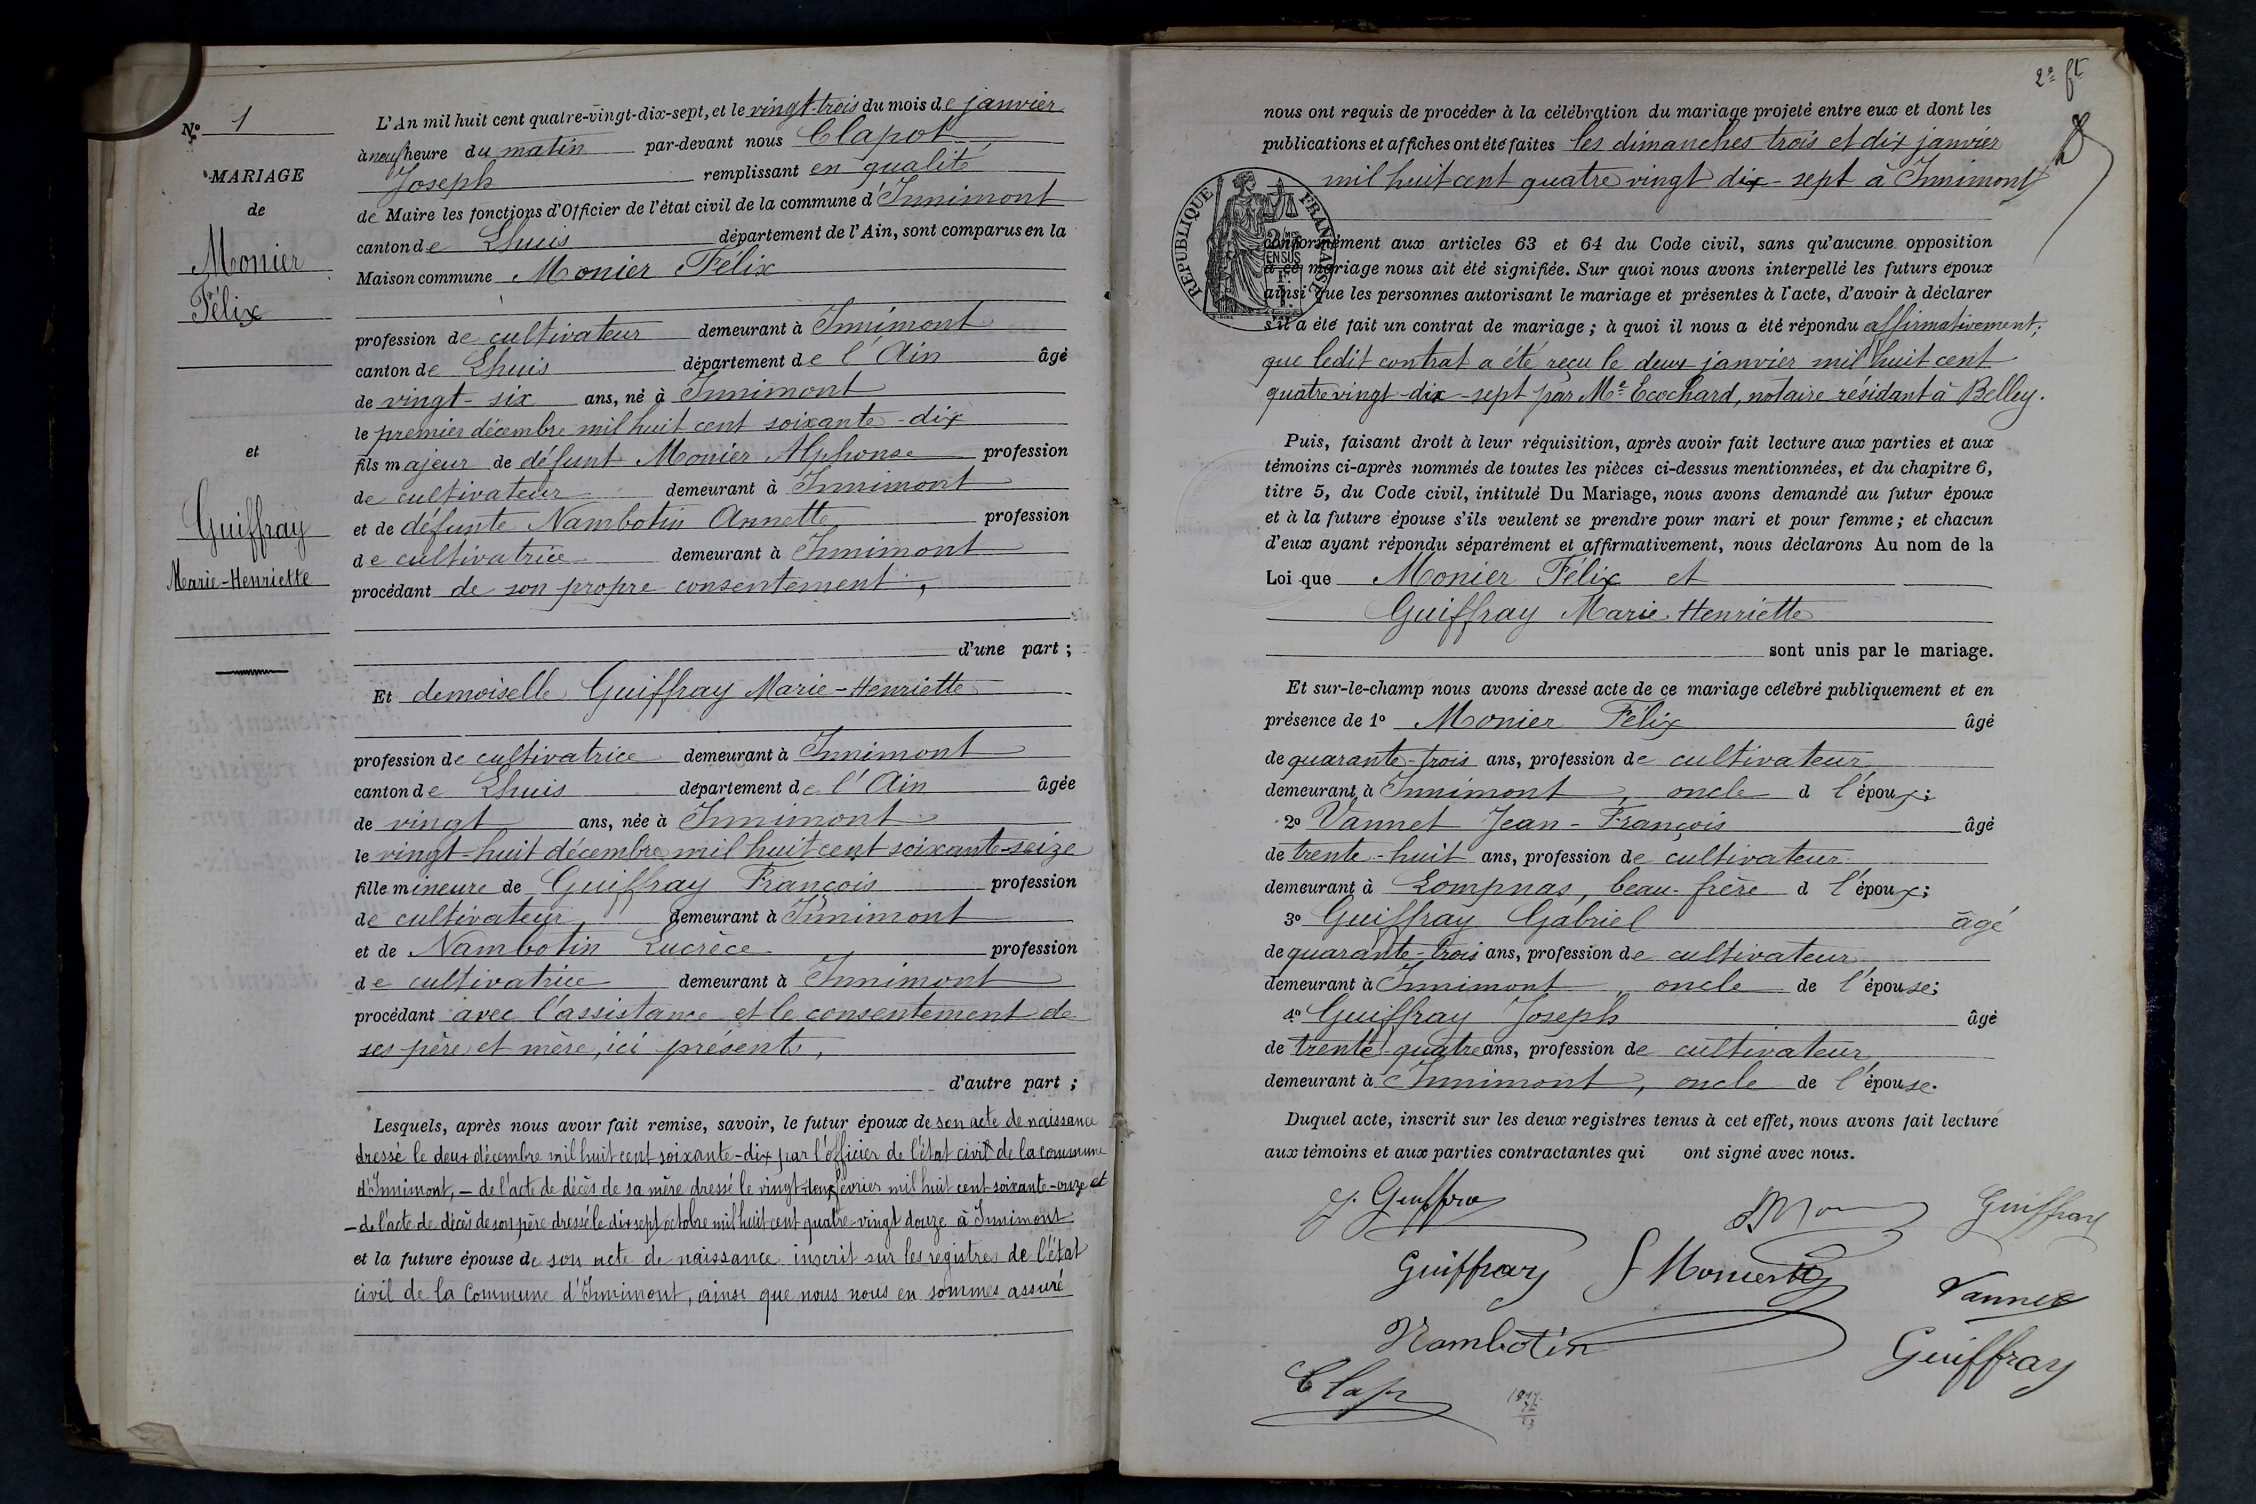 N.° 1
MARIAGE
de
Monier
Félix
et
Guiffray
Marie-Henriette
L'An mil huit cent quatre-vingt-dix-sept, et le vingt-trois du mois de janvier
à neuf heure du matin par-devant nous Clapot
Joseph remplissant en qualité
de Maire les fonctions d'Officier de l'état civil de la commune d'Innimont
canton de Lhuis département de l'Ain, sont comparus en la
Maison commune Monier Félix
profession de cultivateur demeurant à Innimont
canton de Lhuis département de l'Ain âgé
de vingt-six ans, né à Innimont
le premier décembre mil huit cent soixante-dix
fils majeur de défunt Monier Alphonse profession
de cultivateur demeurant à Innimont
et de défunte Nambotin Annette profession
de cultivatrice demeurant à Innimont
procédant de son propre consentement,
d'une part ;
Et demoiselle Guiffray Marie-Henriette
profession de cultivatrice demeurant à Innimont
canton de Lhuis département de l'Ain âgée
de vingt ans, née à Innimont
le vingt-huit décembre mil huit cent soixante-seize
fille mineure de Guiffray François profession
de cultivateur demeurant à Innimont
et de Nambotin Lucrèce profession
de cultivatrice demeurant à Innimont
procédant avec l'assistance et le consentement de
ses père et mère, ici présents,
d'autre part ;
Lesquels, après nous avoir fait remise, savoir, le futur époux de son acte de naissance
dressé le deux décembre mil huit cent soixante-dix par l'officier de l'état civil de la commune
d'Innimont, — de l'acte de décès de sa mère dressé le vingt-deux février mil huit cent soixante-onze et
— de l'acte de décès de son père dressé le dix sept octobre mil huit cent quatre-vingt douze à Innimont
et la future épouse de son acte de naissance inscrit sur les registres de l'état
civil de la Commune d'Innimont, ainsi que nous nous en sommes assuré
2e ft
nous ont requis de procéder à la célébration du mariage projeté entre eux et dont les
publications et affiches ont été faites les dimanches trois et dix janvier
mil huit cent quatre vingt dix-sept à Innimont
RÉPUBLIQUE FRANÇAISE
conformément aux articles 63 et 64 du Code civil, sans qu'aucune opposition
à ce mariage nous ait été signifiée. Sur quoi nous avons interpellé les futurs époux
ainsi que les personnes autorisant le mariage et présentes à l'acte, d'avoir à déclarer
s'il a été fait un contrat de mariage ; à quoi il nous a été répondu affirmativement;
que ledit contrat a été reçu le deux janvier mil huit cent
quatre vingt-dix-sept par Me Ecochard, notaire résidant à Belley.
Puis, faisant droit à leur réquisition, après avoir fait lecture aux parties et aux
témoins ci-après nommés de toutes les pièces ci-dessus mentionnées, et du chapitre 6,
titre 5, du Code civil, intitulé Du Mariage, nous avons demandé au futur époux
et à la future épouse s'ils veulent se prendre pour mari et pour femme ; et chacun
d'eux ayant répondu séparément et affirmativement, nous déclarons Au nom de la
Loi que Monier Félix et
Guiffray Marie-Henriette
sont unis par le mariage.
Et sur-le-champ nous avons dressé acte de ce mariage célébré publiquement et en
présence de 1° Monier Félix âgé
de quarante-trois ans, profession de cultivateur
demeurant à Innimont, oncle d l'époux;
2° Vannet Jean-François âgé
de trente-huit ans, profession de cultivateur
demeurant à Lompnas, beau-frère d l'époux;
3° Guiffray Gabriel âgé
de quarante-trois ans, profession de cultivateur
demeurant à Innimont, oncle de l'épouse;
4° Guiffray Joseph âgé
de trente-quatre ans, profession de cultivateur
demeurant à Innimont, oncle de l'épouse.
Duquel acte, inscrit sur les deux registres tenus à cet effet, nous avons fait lecture
aux témoins et aux parties contractantes qui ont signé avec nous.
Guiffray
Guiffray
f Monier
Vannet
Nambotin
Guiffray
Clap